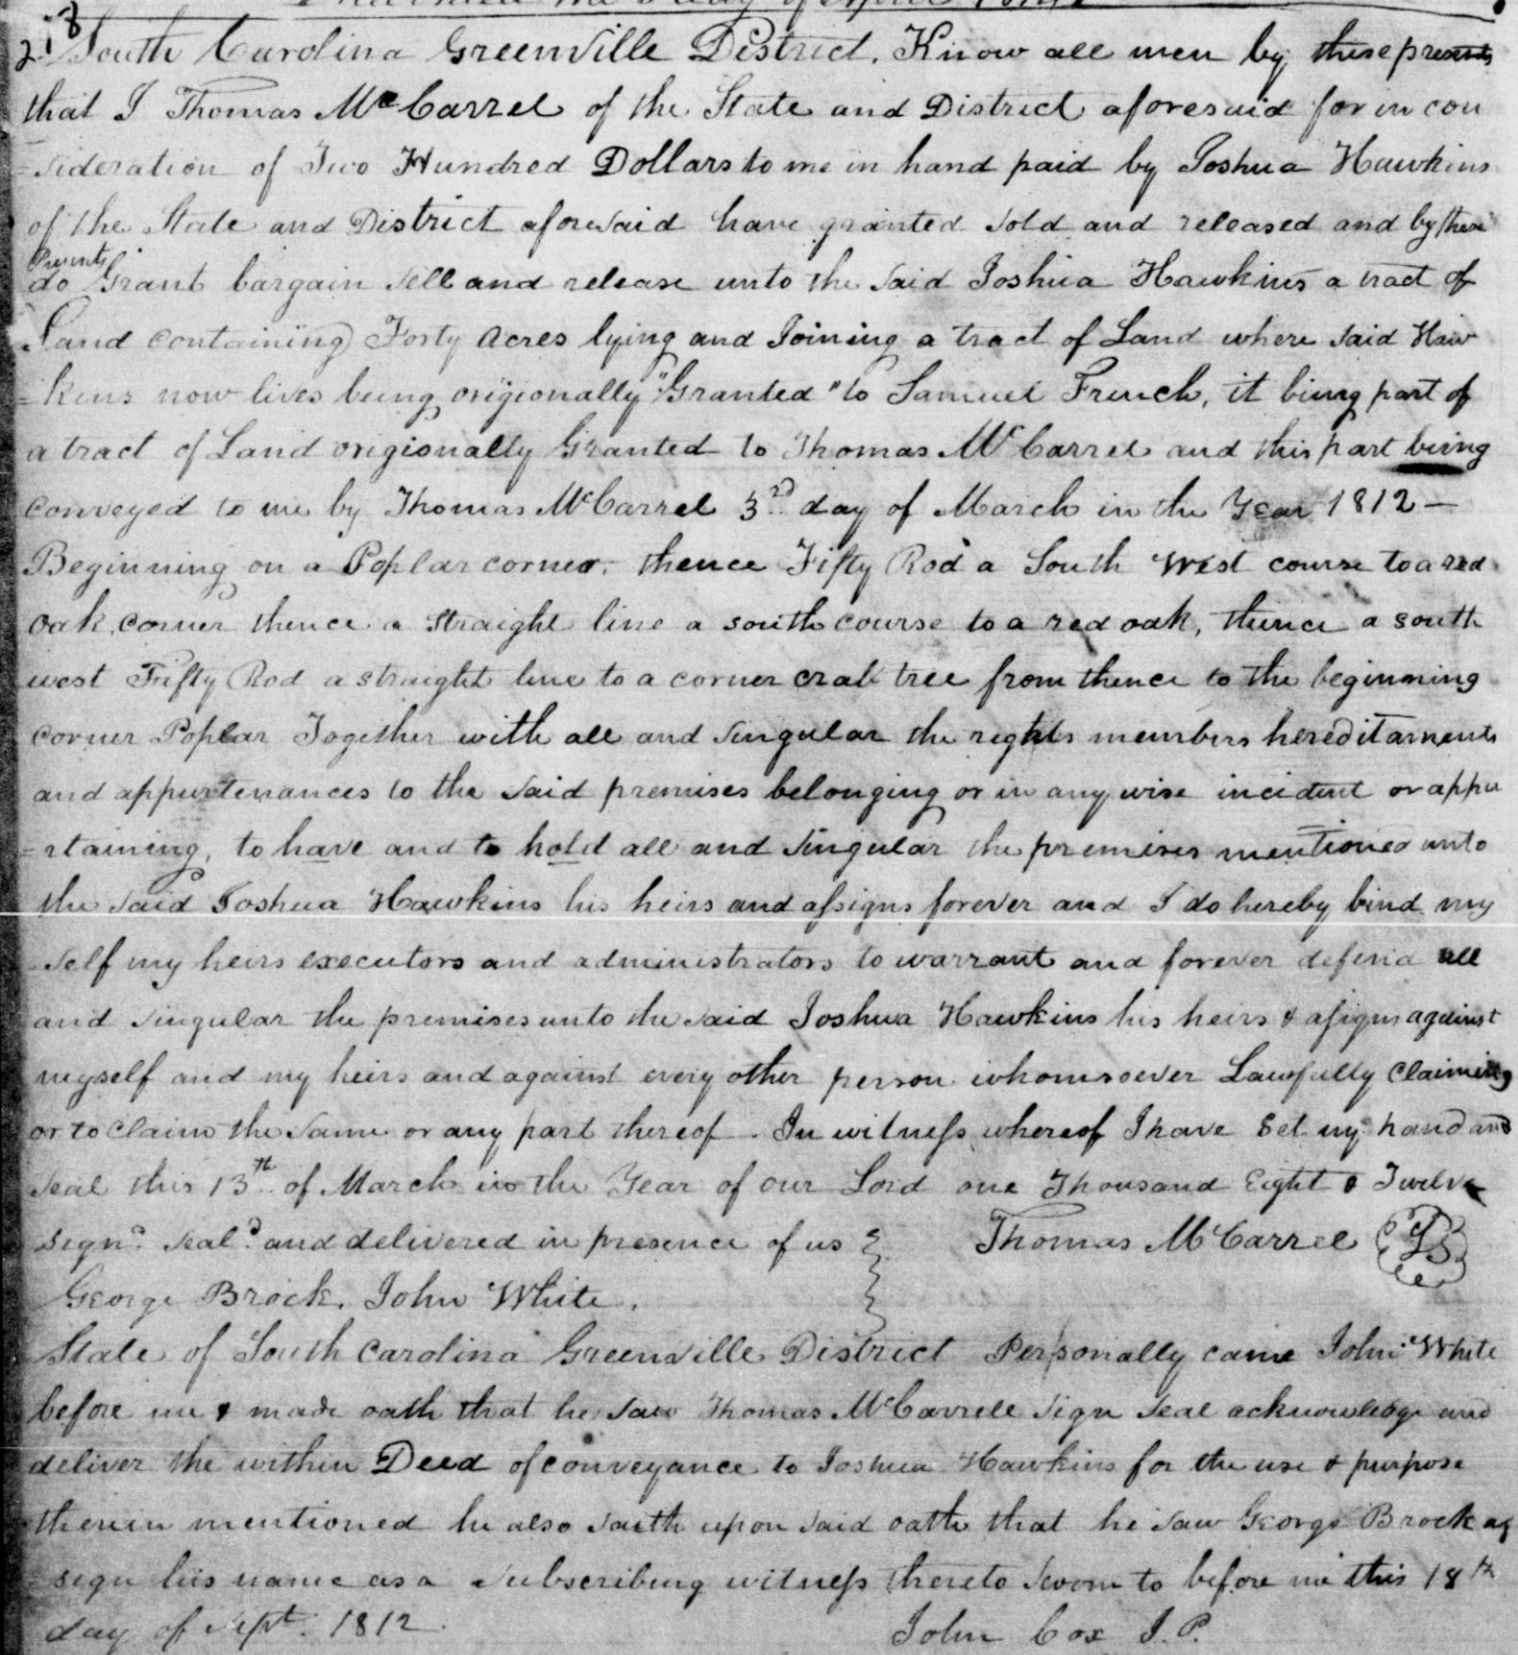 218
South Carolina Greenville District. Know all men by these presents
that I Thomas McCarrel of the State and District aforesaid for in con
=sideration of Two Hundred Dollars to me in hand paid by Joshua Hawkins
of the State and District aforesaid have granted sold and released and by these
Presents
do Grant bargain sell and release unto the said Joshua Hawkins a tract of
Land containing Forty Acres lying and Joining a tract of Land where said Haw
=kins now lives being origionally "Granted" to Samuel French, it being part of
a tract of Land origionally Granted to Thomas McCarrel and this part being
conveyed to me by Thomas McCarrel 3rd day of March in the Year 1812 —
Beginning on a Poplar corner. thence Fifty Rod a South West course to a red
oak corner thence a straight line a south course to a red oak, thence a south
west Fifty Rod a straight line to a corner crab tree from thence to the beginning
corner Poplar Together with all and singular the rights members hereditaments
and appurtenances to the said premises belonging or in any wise incident or appu
=rtaining, to have and to hold all and singular the premises mentioned unto
the said Joshua Hawkins his heirs and assigns forever and I do hereby bind my
self my heirs executors and administrators to warrant and forever defend all
and singular the premises unto the said Joshua Hawkins his heirs & assigns against
myself and my heirs and against every other person whomsoever Lawfully claiming
or to claim the same or any part thereof. In witness whereof I have Set my hand and
seal this 13th of March in the Year of our Lord one Thousand Eight & Twelve
Signd. Seald. and delivered in presence of us Thomas McCarrel LS
George Brock. John White.
State of South Carolina Greenville District Personally came John White
before me & made oath that he saw Thomas McCarrell sign seal acknowledge and
deliver the within Deed of conveyance to Joshua Hawkins for the use & purpose
therein mentioned he also saith upon said oath that he saw George Brock as
sign his name as a subscribing witness thereto sworn to before me this 18th
day of Sept. 1812. John Cox J.P.